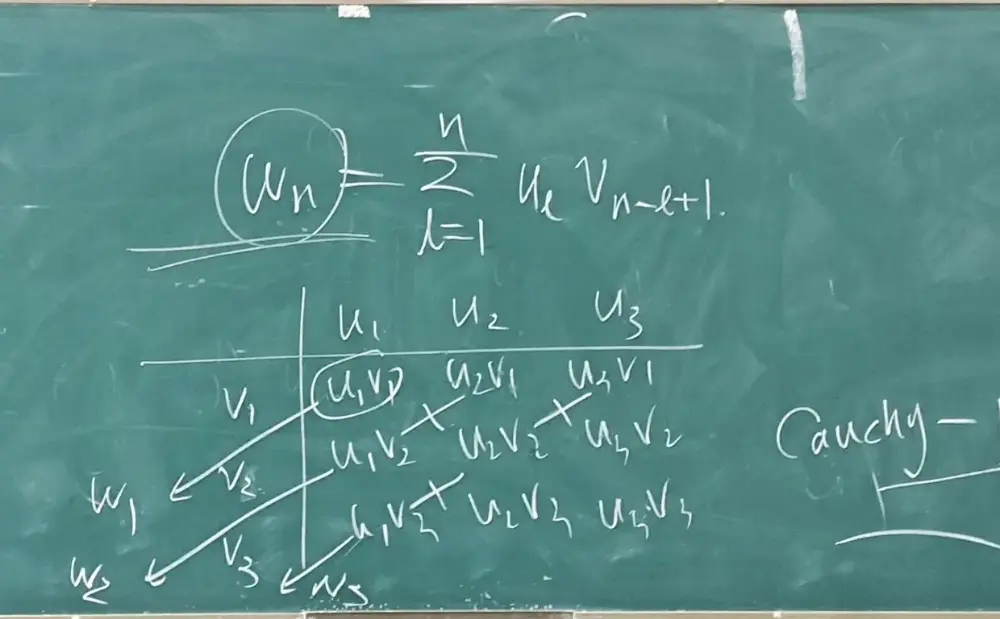 wₙ = Σ_{l=1}^{n} u_l v_{n-l+1}.
u₁ u₂ u₃
v₁ u₁v₁ u₂v₁ u₃v₁
v₂ u₁v₂ + u₂v₂ + u₃v₂
v₃ u₁v₃ + u₂v₃ u₃v₃
w₁
w₂ w₃
Cauchy-